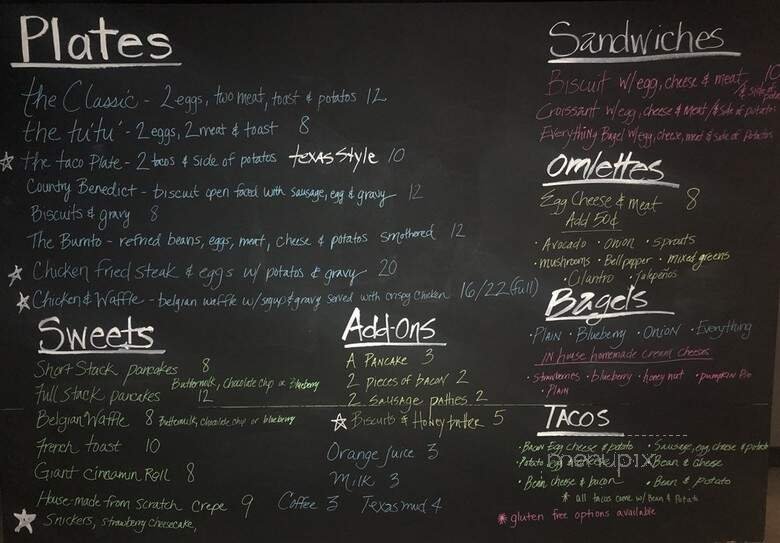 Plates
the Classic - 2 eggs, two meat, toast & potatos 12
the tutu' - 2 eggs, 2 meat & toast 8
the taco Plate - 2 tacos & side of potatos texas style 10
Country Benedict - biscuit open faced with sausage, egg & gravy 12
Biscuits & gravy 8
The Burrito - refried beans, eggs, meat, cheese & potatos smothered 12
Chicken fried steak & eggs w/ potatos & gravy 20
Chicken & Waffle - belgian waffle w/ syrup & gravy served with crispy chicken 16/22 (full)
Sweets
Short Stack pancakes 8
Full stack pancakes 12
Buttermilk, Chocolate chip or Blueberry
Belgian Waffle 8 Buttermilk, chocolate chip or blueberry
French toast 10
Giant Cinnamin Roll 8
House-made from Scratch crepe 9
Snickers, strawberry cheesecake,
Add-Ons
A Pancake 3
2 pieces of bacon 2
2 Sausage patties 2
Biscuits & Honey butter 5
Orange Juice 3
Milk 3
Coffee 3 Texas mud 4
Sandwiches
Biscuit w/ egg, cheese & meat
Croissant w/ egg, cheese & meat / & side of potatos
Everything Bagel w/ egg, cheese, meat & side of Potatos
Omlettes
Egg Cheese & meat 8
Add 50¢
• Avocado • onion • sprouts
• mushrooms • Bell pepper • mixed greens
• Cilantro • jalapeños
Bagels
• Plain • Blueberry • Onion • Everything
In house homemade cream cheeses
• Strawberries • blueberry • honey nut • pumpkin Pie
• Plain
Tacos
• Bacon Egg cheese & potato • Sausage, egg, cheese & potato
• Potato • Bean & cheese
• Bean cheese & bacon • Bean & potato
* all tacos come w/ Bean & Potato
* gluten free options available
menupix